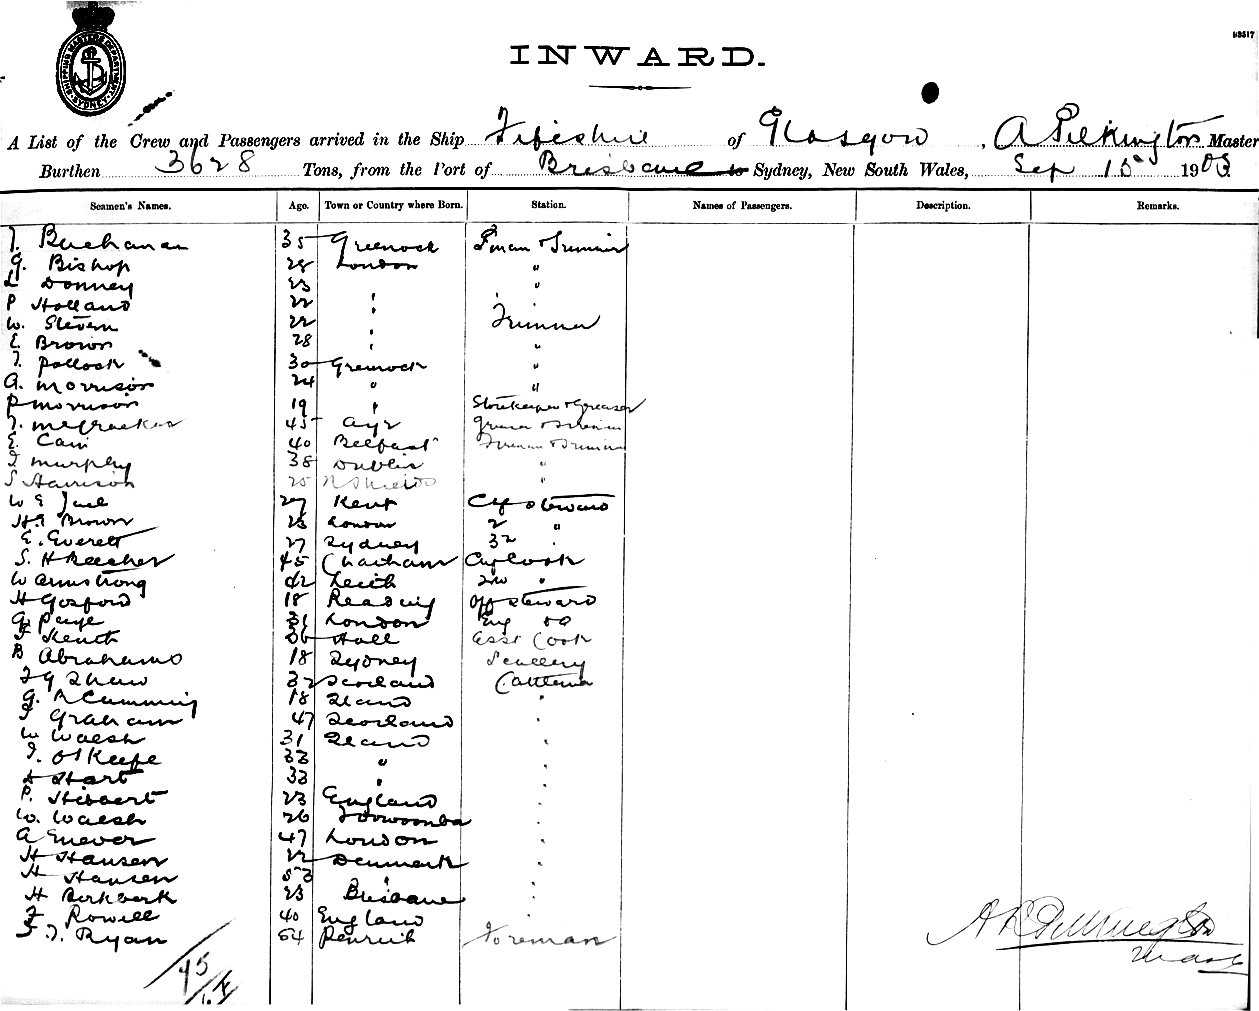 93517
SHIPPING MASTERS DEPARTMENT SYDNEY
INWARD.
A List of the Crew and Passengers arrived in the Ship Fifeshire of Glasgow, A Pilkington Master
Burthen 3628 Tons, from the Port of Brisbane to Sydney, New South Wales, Sep 15 1903
Seamen's Names. Age. Town or Country where Born. Station. Names of Passengers. Description. Remarks.
J. Buchanan 35 Greenock Fman & Trimmer
G. Bishop 28 London "
L Donney 23 "
P Holland 22 "
W. Steven 22 " Trimmer
E. Brown 28 " "
J. Pollock 30 Greenock "
A. Morrison 24 " "
P Morrison 19 " Storekeeper & Greaser
J. McCracken 45 Ayr Greaser & Trimmer
E. Cain 40 Belfast Fireman & Trimmer
J Murphy 38 Dublin "
S Harrison 25 N Shields "
W E 27 Kent Chf Steward
H E Brown 23 London 2 "
E. Everett 27 Sydney 3rd "
S. H Beecher 45 Chatham Chf Cook
W Armstrong 42 Leith 2nd "
H Gosford 18 Reading Off Steward
G. Paye 31 London Eng do
F Kench 36 Hull Asst Cook
B Abrahams 18 Sydney Scullery
J G Shaw 32 Scotland Cattleman
G. A Cumming 18 "
J Graham 47 Scotland "
W Walsh 31 "
J. O'Keefe 33 " "
Hart 33 " "
P. Hibbert 23 England "
W. Walsh 26 Toowoomba "
A Enever 47 London "
H Hansen 22 Denmark "
H Hansen 53 " "
H Birkbeck 23 Brisbane "
F Rowill 40 England "
J. Ryan 64 Penrith Foreman
A Pilkington
Master
75